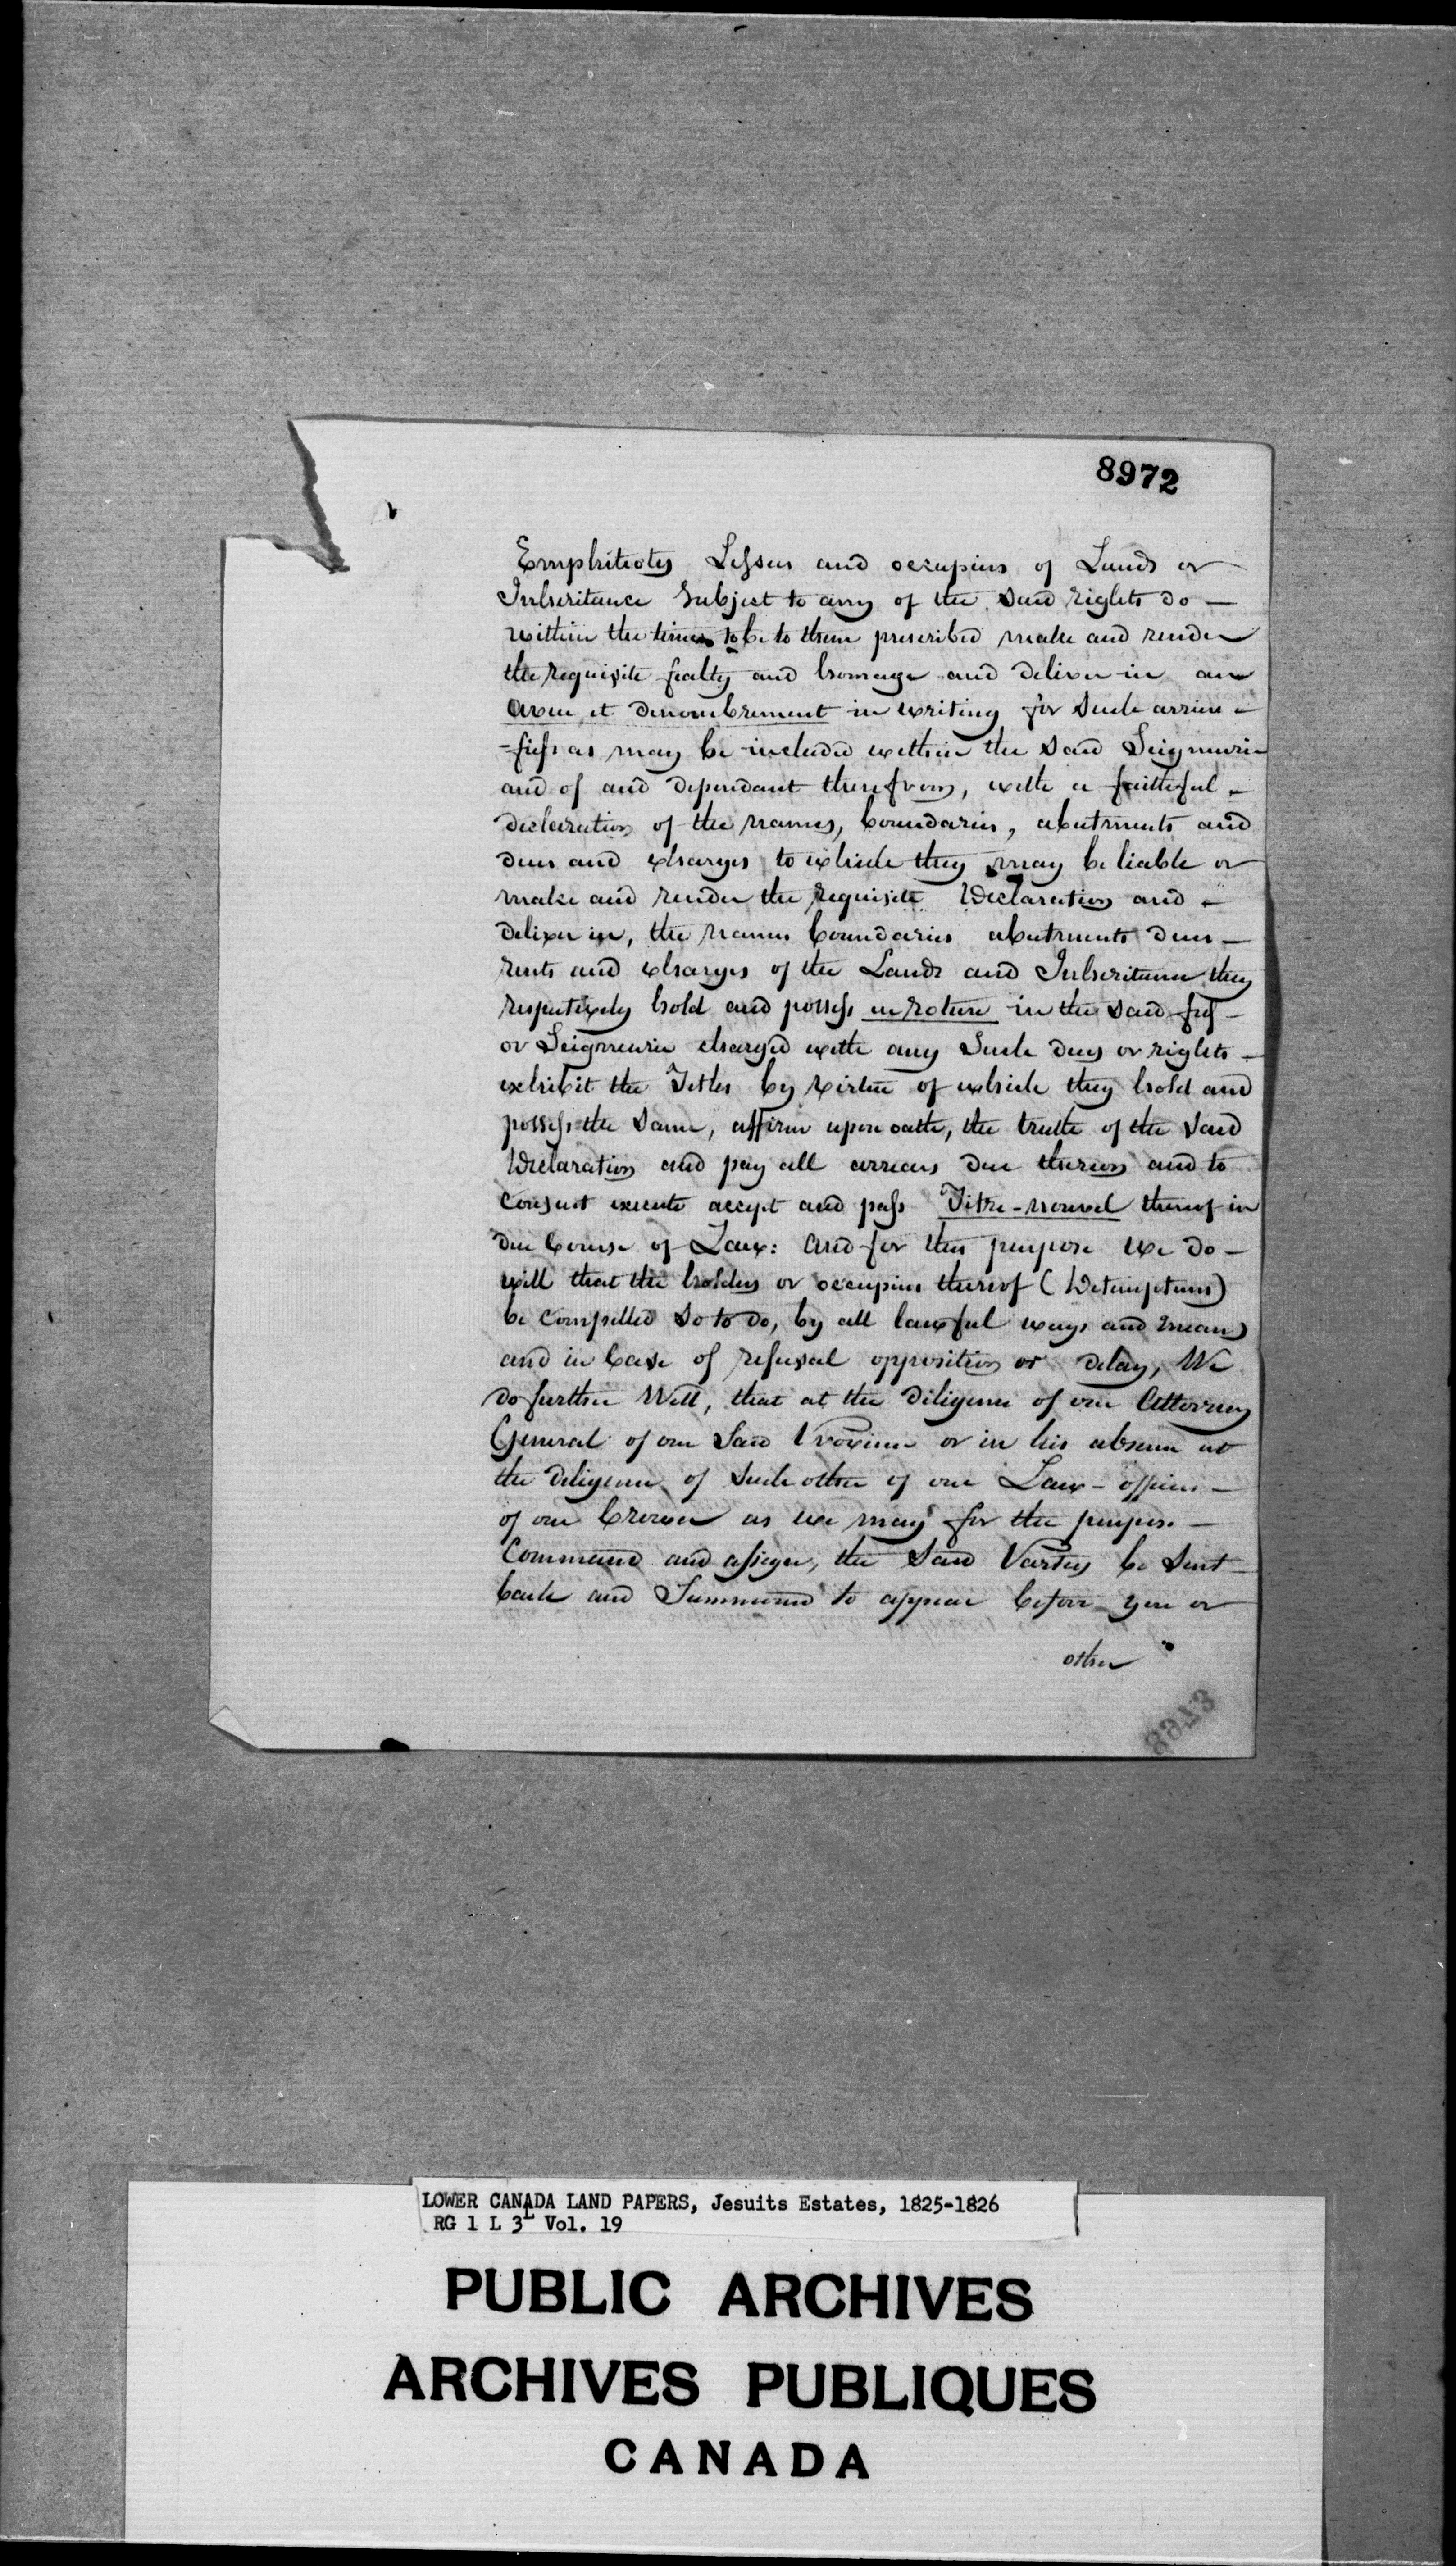 8972
Emphitiotes Lessees and occupiers of Lands or
Inheritance Subject to any of the said rights do —
within the times to be to them prescribed make and render
the requisite fealty and homage and deliver in an
aveu et denombrement in writing for such arriere -
-fiefs as may be included within the said Seigneurie
and of and dependant therefrom, with a faithful -
declaration of the names, boundaries, abutments and
dues and charges to which they may be liable or
make and render the requisite Declaration and -
deliver in, the names boundaries abutments dues —
rents and charges of the Lands and Inheritance they
respectively hold and possess en roture in the said fief -
or Seigneurie charged with any Such dues or rights -
exhibit the Titles by virtue of which they hold and
possess the same, affirm upon oath, the truth of the said
Declaration and pay all arrears due thereon and to
consent execute accept and pass Titre-nouvel thereof in
due Course of Law: and for this purpose we do —
will that the holders or occupiers thereof (Detempteurs)
be compelled so to do, by all lawful ways and means
and in Case of refusal opposition or delay, We
do further Will, that at the diligence of our Attorney
General of our said Province or in his absence at
the diligence of such other of our Law-officers —
of our Crown as we may for the purpose —
Command and assign, the said Parties be sent —
back and Summoned to appear before you or
other
8973
LOWER CANADA LAND PAPERS, Jesuits Estates, 1825-1826
RG 1 L 3L Vol. 19
PUBLIC ARCHIVES
ARCHIVES PUBLIQUES
CANADA